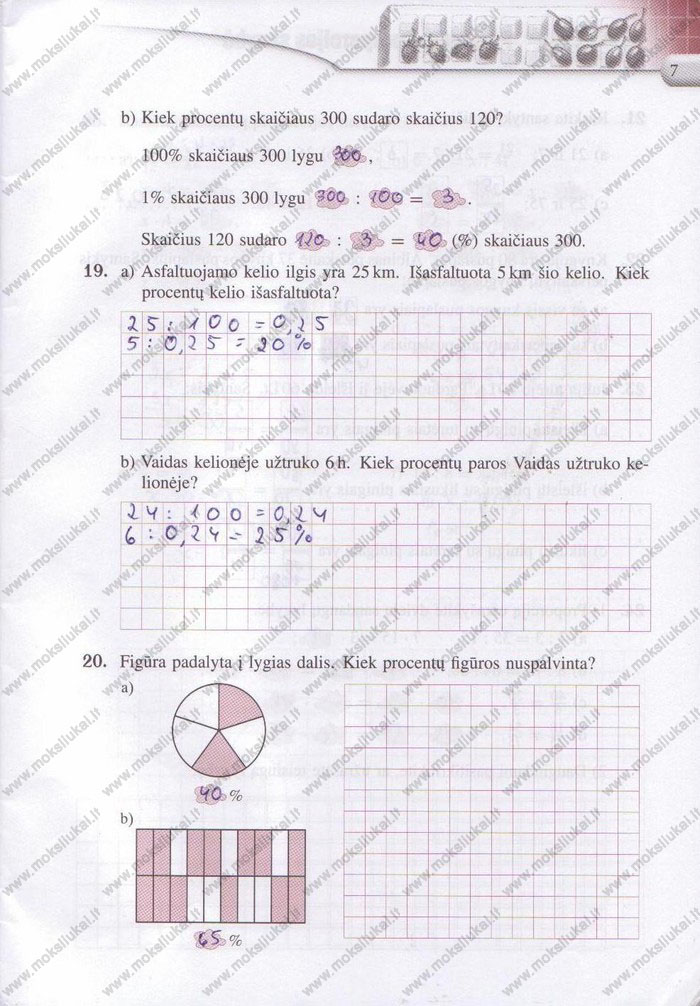 7
b) Kiek procentų skaičiaus 300 sudaro skaičius 120?
100% skaičiaus 300 lygu 300,
1% skaičiaus 300 lygu 300 : 100 = 3.
Skaičius 120 sudaro 120 : 3 = 40 (%) skaičiaus 300.
19. a) Asfaltuojamo kelio ilgis yra 25 km. Išasfaltuota 5 km šio kelio. Kiek
procentų kelio išasfaltuota?
25 : 100 = 0,25
5 : 0,25 = 20 %
b) Vaidas kelionėje užtruko 6 h. Kiek procentų paros Vaidas užtruko ke-
lionėje?
24 : 100 = 0,24
6 : 0,24 = 25 %
20. Figūra padalyta į lygias dalis. Kiek procentų figūros nuspalvinta?
a)
40 %
b)
65 %
www.moksliukai.lt